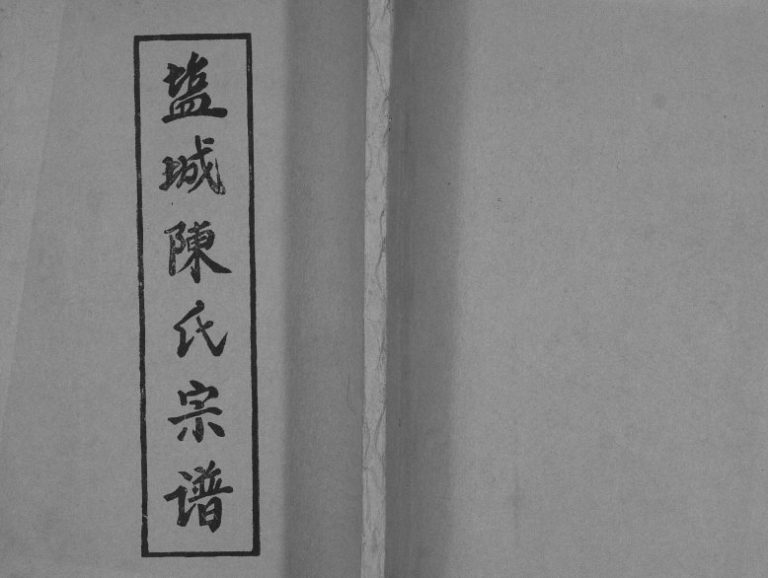 盐城陳氏宗谱